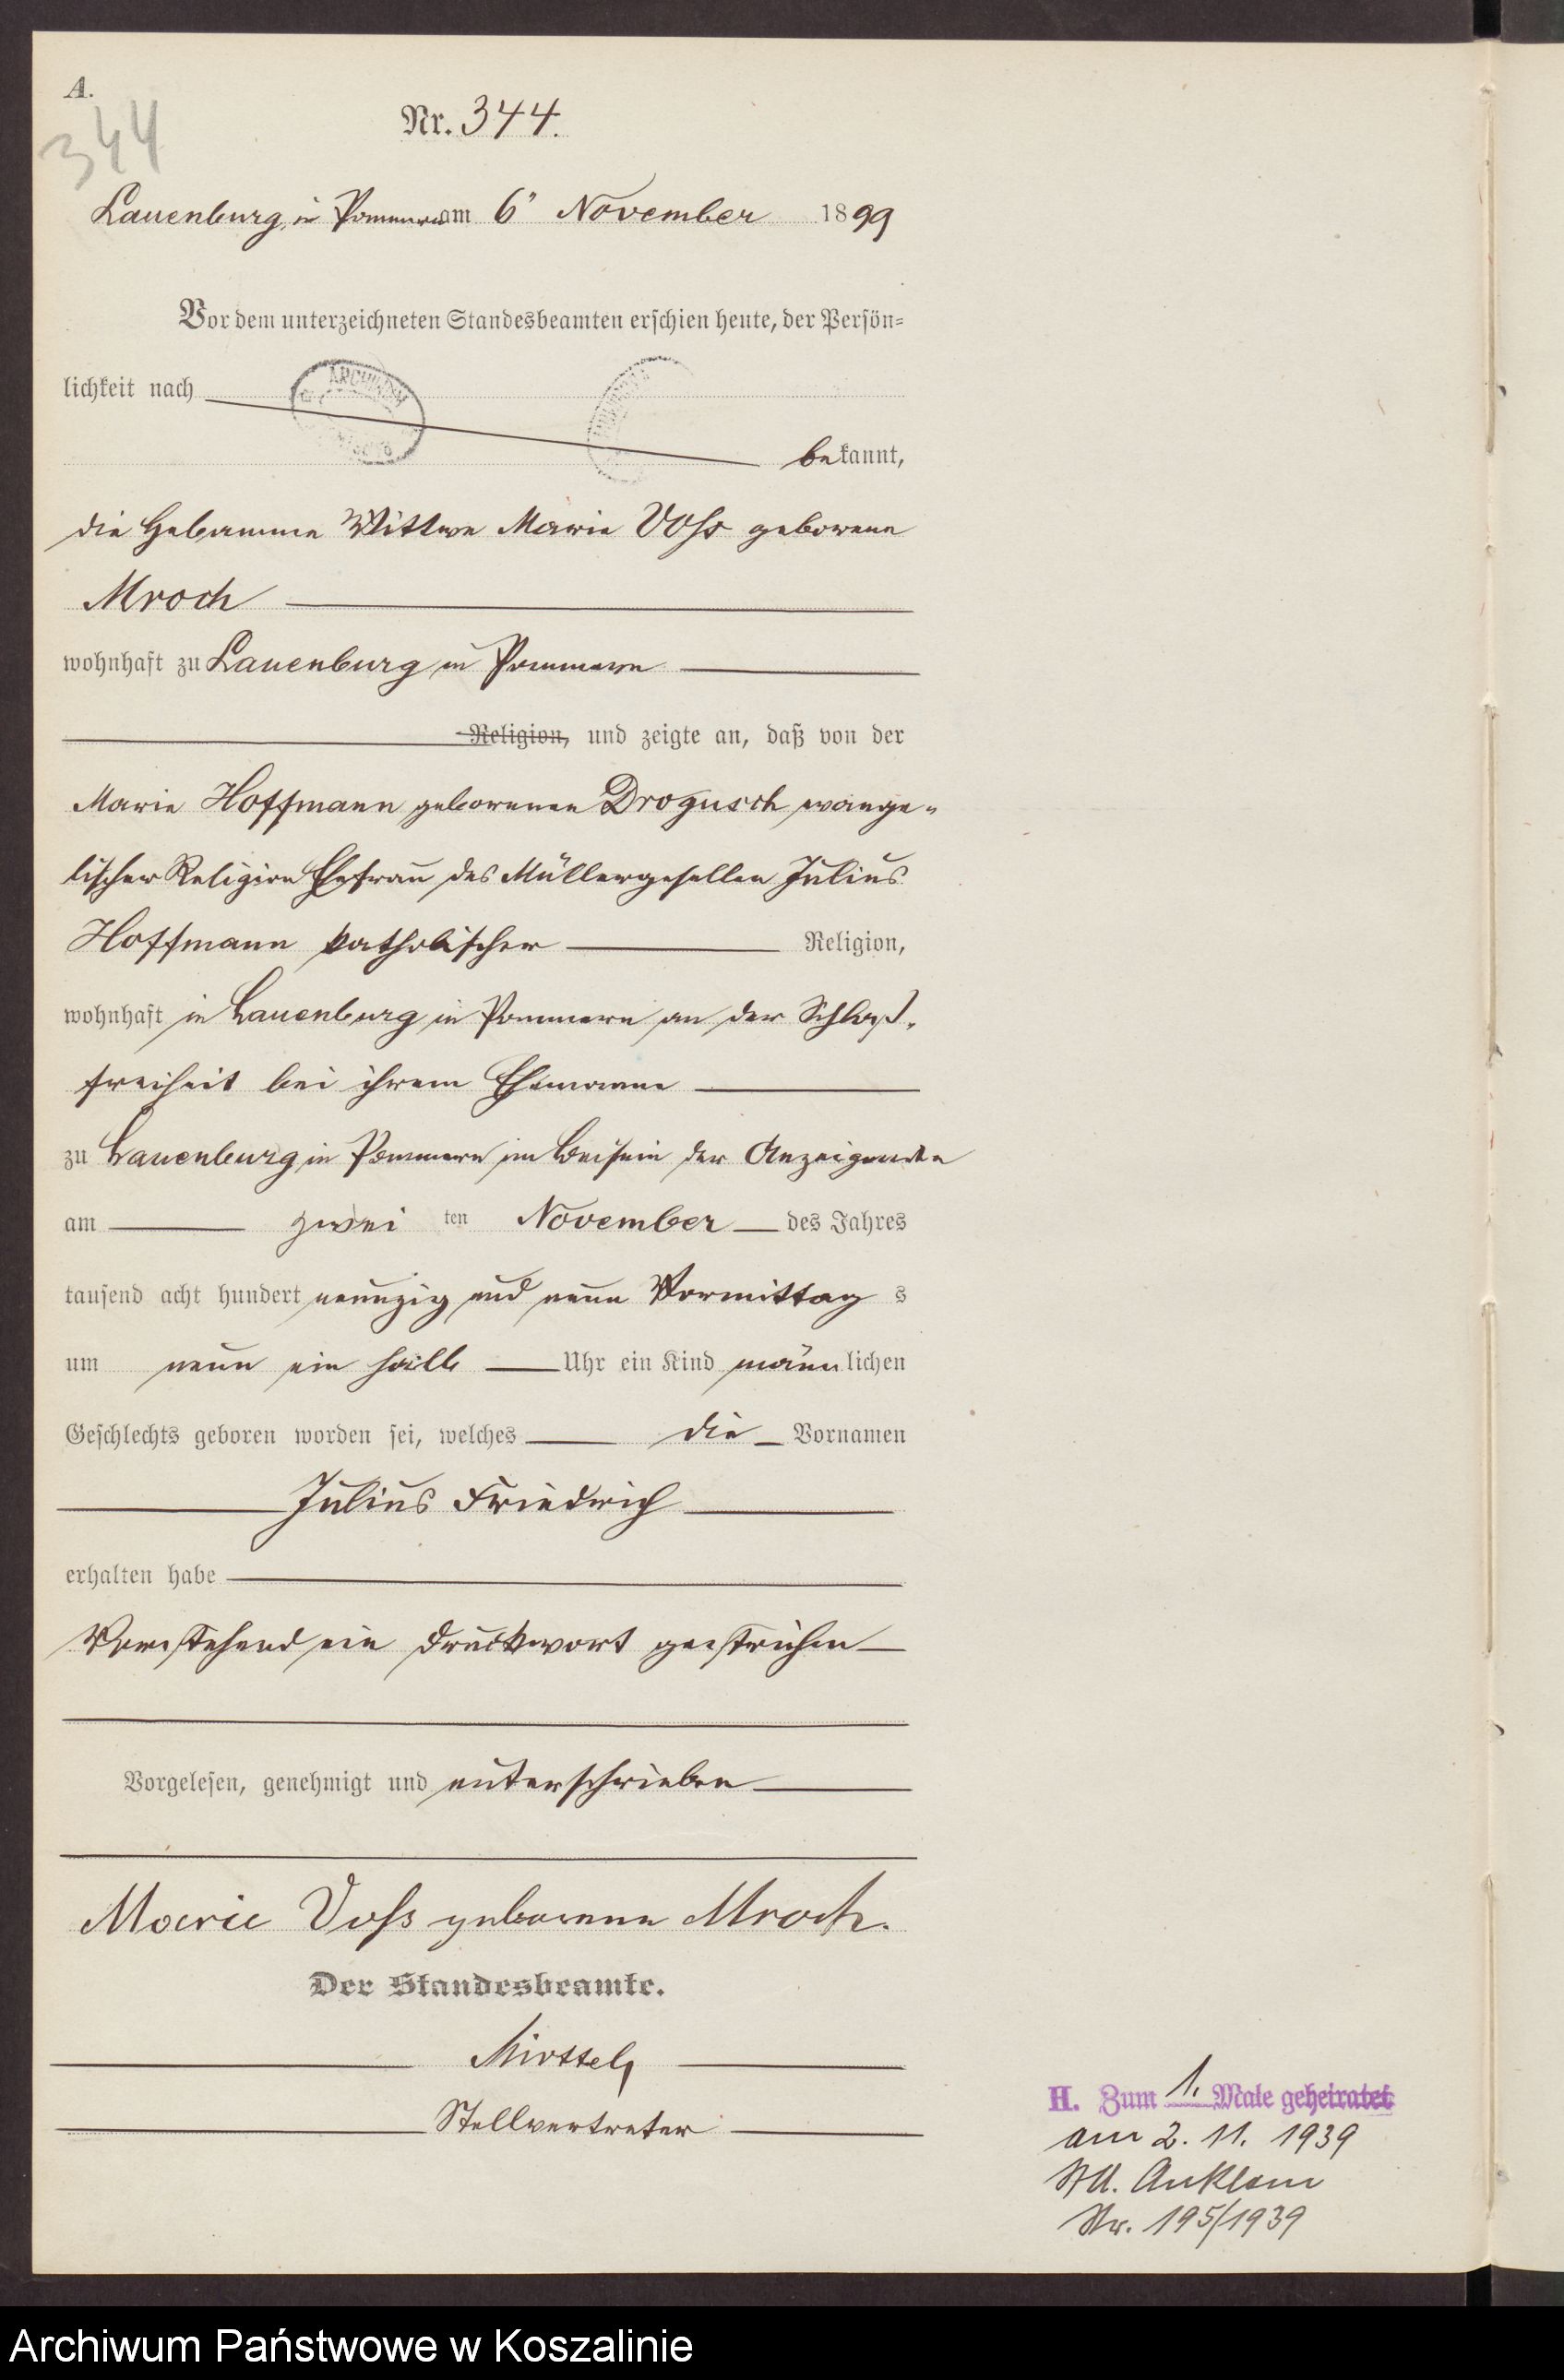 A.
344
Nr. 344.
Lauenburg in Pommern am 6" November 1899
Vor dem unterzeichneten Standesbeamten erschien heute, der Persön=
lichkeit nach
bekannt,
die Hebamme Wittwe Marie Voss geborene
Mroch
wohnhaft zu Lauenburg in Pommern
Religion, und zeigte an, daß von der
Marie Hoffmann geborenen Drogusch evange-
lischer Religion Ehefrau des Müllergesellen Julius
Hoffmann katholischer Religion,
wohnhaft in Lauenburg in Pommern an der Schloß-
freiheit bei ihrem Ehemanne
zu Lauenburg in Pommern im Beisein der Anzeigenden
am zwei ten November des Jahres
tausend acht hundert neunzig und neun Vormittag s
um neun ein halb Uhr ein Kind männlichen
Geschlechts geboren worden sei, welches die Vornamen
Julius Friedrich
erhalten habe
Vorstehend ein Druckwort gestrichen
Vorgelesen, genehmigt und unterschrieben
Marie Voss geborene Mroch.
Der Standesbeamte.
Stellvertreter
H. Zum 1. Male geheiratet
am 2. 11. 1939
StA. Anklam
Nr. 195/1939
Archiwum Państwowe w Koszalinie